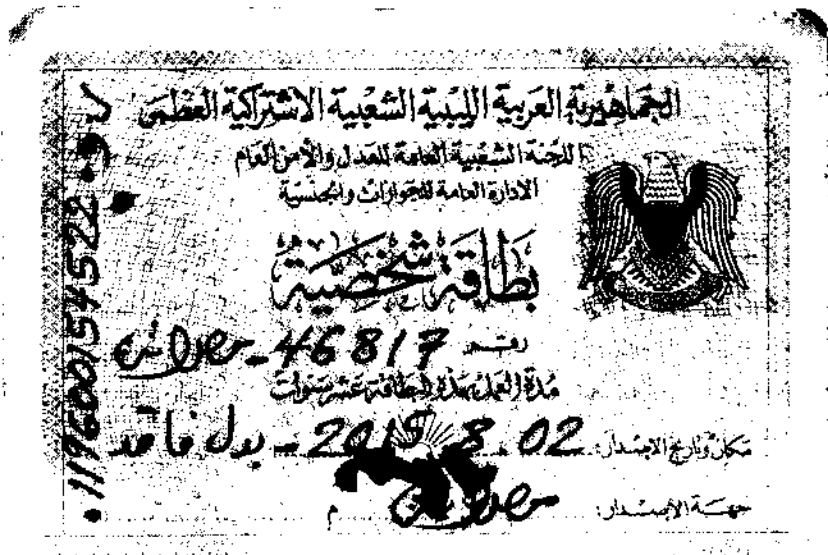 الجماهيرية العربية الليبية الشعبية الاشتراكية العظمى
اللجنة الشعبية العامة للعدل والأمن العام
الادارة العامة للجوازات والجنسية
بطاقة شخصية
رقم 46817 - مصراتة
مدة العمل بهذه البطاقة عشر سنوات
مكان وتاريخ الاصدار: 02 8 2015 - بدل فاقد
جهة الاصدار: مصراتة م
119600154522